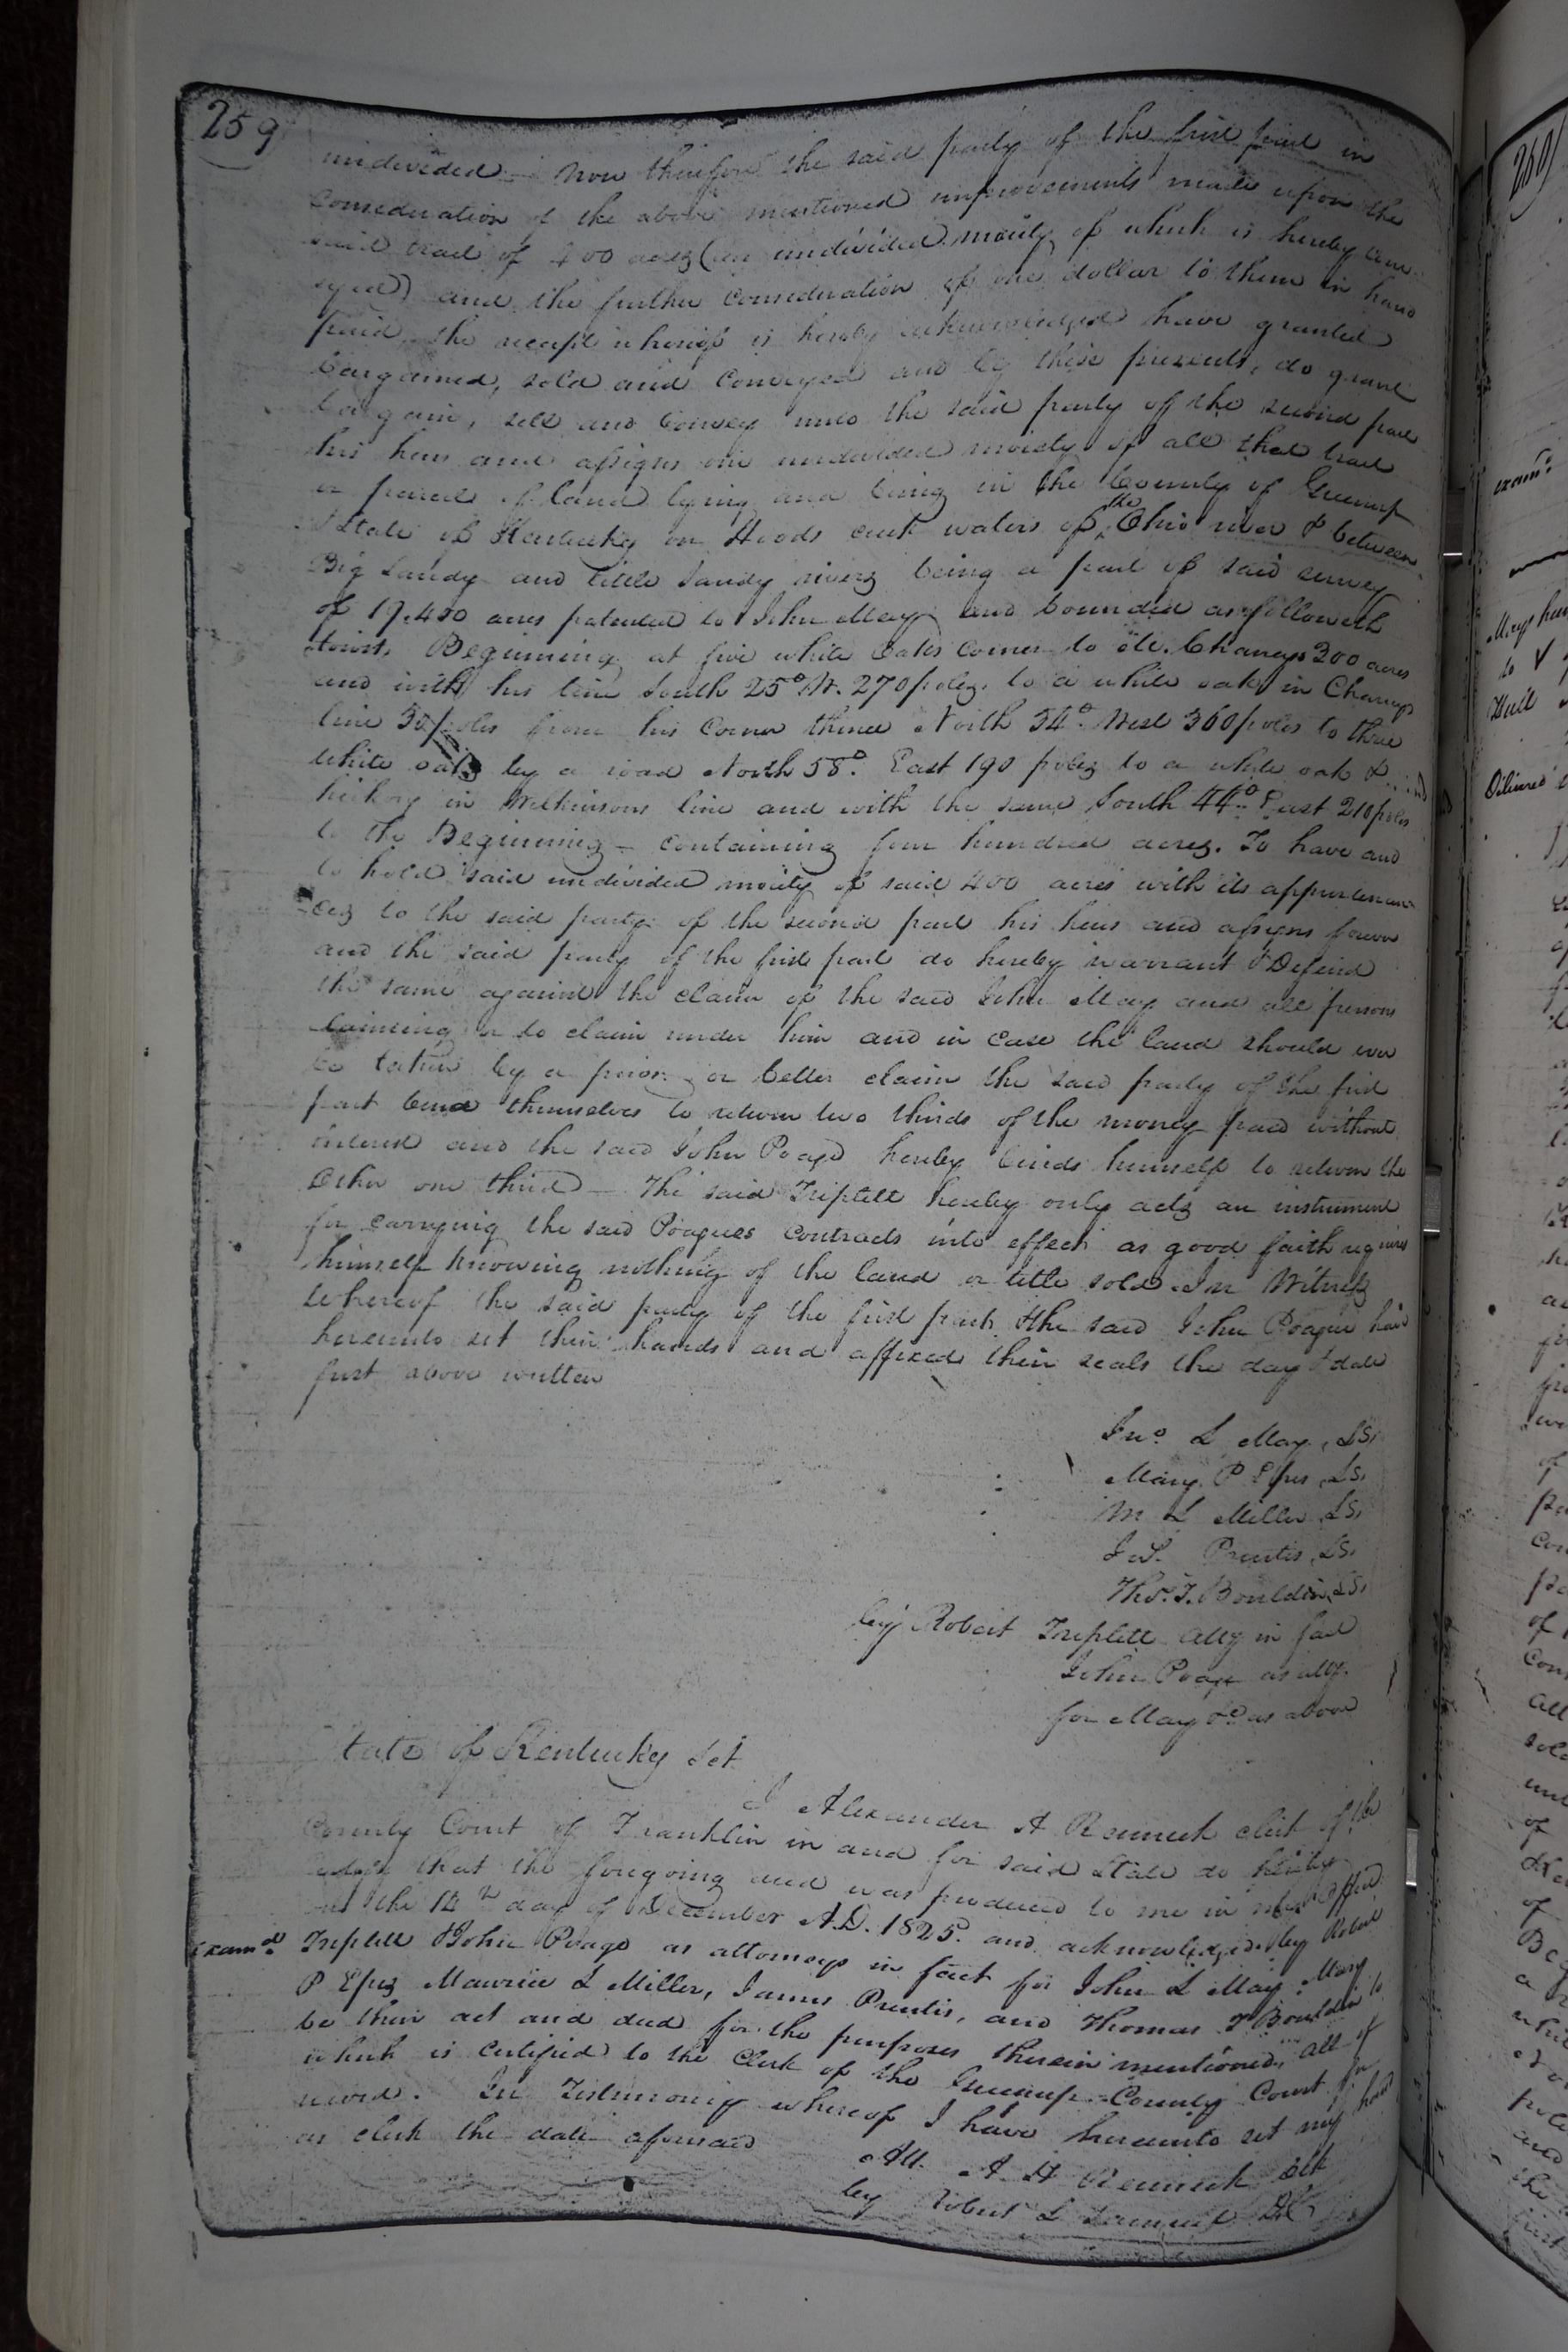 259
undivided – Now therefore the said party of the first part in
Consideration of the above mentioned improvements made upon the
said tract of 400 acres (an undivided moiety of which is hereby con-
veyed) and the further Consideration of one dollar to them in hand
paid, the receipt whereof is hereby acknowledged have granted
bargained, sold and Conveyed and by these presents, do grant
bargain, sell and Convey unto the said party of the second part
his heirs and assigns one undivided moiety of all that tract
or parcel of land lying and being in the County of Greenup
State of Kentucky on Hoods creek waters of the Ohio river & between
Big Sandy and little Sandy rivers being a part of said survey
of 19.400 acres patented to John May and bounded as followeth
towit, Beginning at five white Oaks Corner to 300 acres
and with his line South 25° W. 270 poles, to a white oak in
line 30 poles from his Corner thence North 54° West 360 poles to three
white oaks by a road North 58° East 190 poles to a white oak &
hickory in Wilkinsons line and with the same South 44° East 210 poles
to the Beginning – containing four hundred acres. To have and
to hold said undivided moiety of said 400 acres with its appurtenan-
ces to the said party of the second part his heirs and assigns forever
and the said party of the first part do hereby warrant & Defend
the same against the claim of the said John May and all persons
claiming or to claim under him and in Case the land should ever
be taken by a prior or better claim the said party of the first
part bind themselves to return two thirds of the money paid without
interest and the said John Poage hereby binds himself to return the
other one third – The said Triplett hereby only acts an instrument
for carrying the said Poagues Contracts into effect as good faith requires
himself knowing nothing of the land or title sold. In Witness
Whereof the said party of the first part & the said John Poague have
hereunto set their hands and affixed their seals the day & date
first above written
Jno. L May, LS,
Mary P Epes, LS,
M L Miller, LS,
Prentis, LS,
Tho. T. Bouldin, LS,
by Robert Triplett Atty in fact
John Poage as atty.
for May &c as above
State of Kentucky Sct
I Alexander H Rennick clerk of the
County Court of Franklin in and for said State do hereby
certify that the foregoing deed was produced to me in my office
on the day of December A.D. 1825. and acknowledged by Robert
Examd. Triplett & John Poage as attorneys in fact for John L May, Mary
P Epes Maurice L Miller, James Prentis, and Thomas T Bouldin to
be their act and deed for the purposes therein mentioned, all of
which is Certified to the Clerk of the Greenup County Court for
record. In Testimony whereof I have hereunto set my hand
as clerk the date aforesaid
Att. A H Rennick clk
by Robert L DC